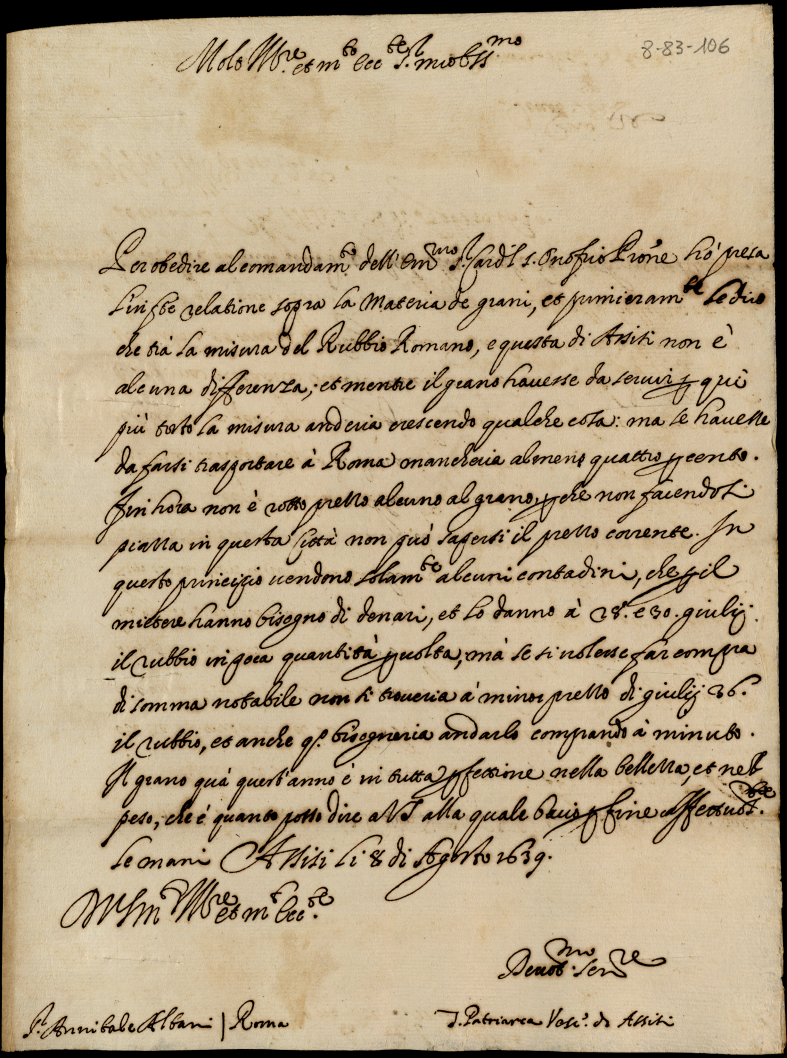 8-83-106
Molto Ill.re et m.to Ecc.te S.r mio oss.mo
Per obedire al comandam.to dell'Em.mo S. Card.l S. Onofrio Prone ho presa
l'infte relatione sopra la Materia de grani, et primieram.te le dico
che trà la misura del Rubbio Romano, e questa di Assisi non è
alcuna differenza; et mentre il grano havesse da servir p qui
più tosto la misura anderia crescendo qualche cosa: ma se havesse
da farsi trasportare à Roma mancheria almeno quattro p cento.
Fin hora non è rotto prezzo alcuno al grano, p che non facendosi
piazza in questa Città non può sapersi il prezzo corrente. In
questo principio vendono solam.te alcuni contadini, che p il
mietere hanno bisogno di denari, et lo danno à 28. e 30. giulij
il rubbio in poca quantità p volta, mà se si volesse far compra
di somma notabile non si troveria à minor prezzo di giulij 36.
il rubbio, et anche q.o bisogneria andarlo comprando à minuto.
Il grano quà quest'anno è in tutta pfettione nella bellezza, et nel
peso, che é quanto posso dire a VS alla quale bacio p fine affettuos.te
le mani Assisi li 8 di Agosto 1639.
DVS m.to Ill.re et m.to Ecc.te
Devot.mo Ser.re
S.r Annibale Albani | Roma
T. Patriarca Vesc.o di Assisi